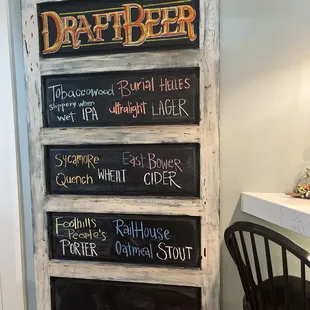 DRAFT BEER
Tobaccowood
slippery when
wet IPA
Burial Helles
ultralight LAGER
Sycamore
Quench WHEAT
East Bower
CIDER
Foothills
People's
PORTER
RailHouse
Oatmeal STOUT